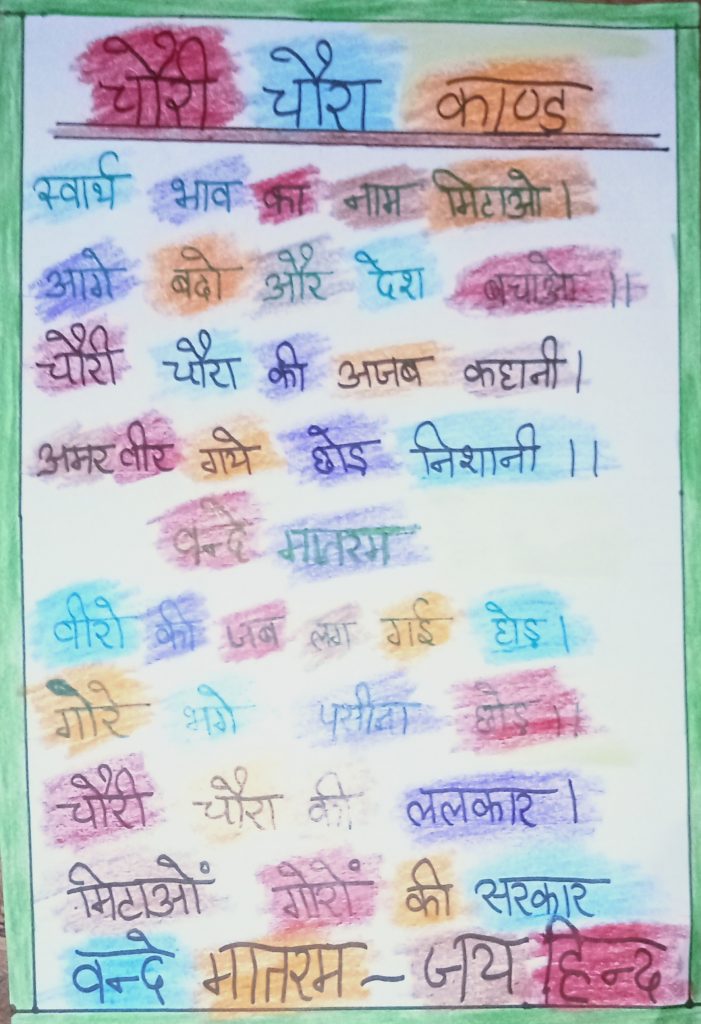 चौरी चौरा काण्ड
स्वार्थ भाव का नाम मिटाओ।
आगे बढो और देश बचाओ ।।
चौरी चौरा की अजब कहानी।
अमर वीर गये छोड निशानी ।।
वन्दे मातरम
वीरो की जब लग गई होड़।
गोरे भगे पसीना छोड़ ।।
चौरी चौरा की ललकार ।
मिटाओं गोरों की सरकार
वन्दे मातरम ~ जय हिन्द